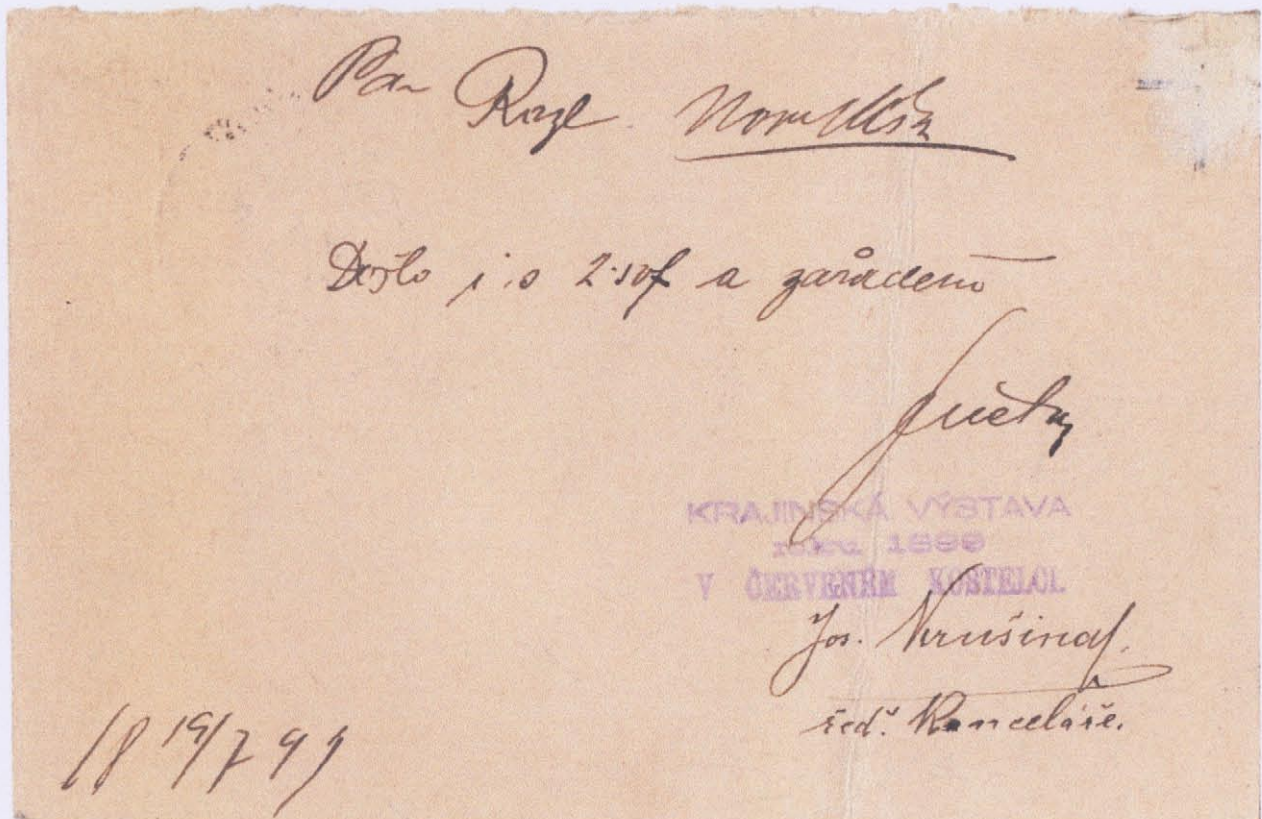 Pan Razl
Došlo i s 2·50f a zařáděno
Úcty
KRAJINSKÁ VÝSTAVA
roku 1899
V ČERVENÉM KOSTELCI.
Jos. Krušina
řed. Kanceláře.
18 19/7 99